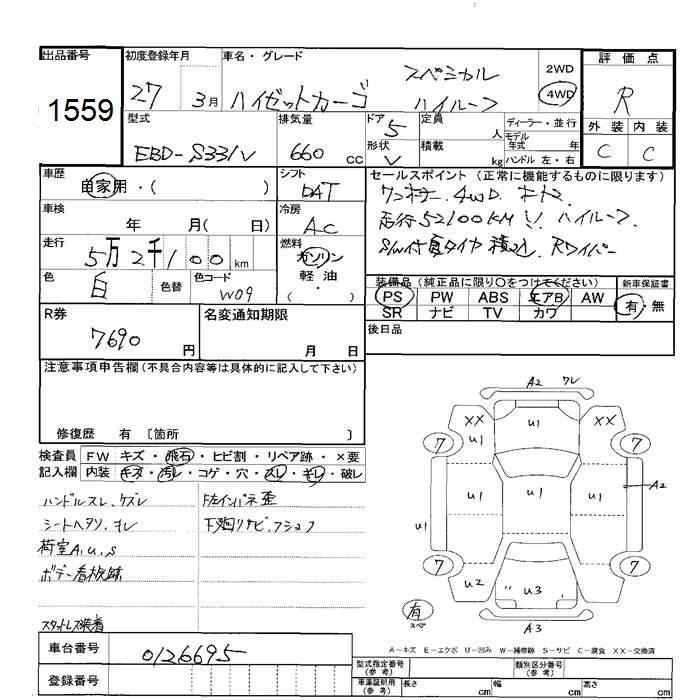 出品番号 初度登録年月 車名・グレード 評価点
1559 27 3月 ハイゼットカーゴ スペシャル ハイルーフ 2WD 4WD R
型式 排気量 ドア 5 定員 人 ディーラー・並行 外装 内装
EBD-S331V 660 cc 形状 V 積載 kg モデル年式 年 ハンドル 左・右 C C
車歴 自家用・( ) シフト DAT セールスポイント(正常に機能するものに限ります)
車検 年 月( 日) 冷房 AC ワンオーナー 4WD
走行 5万2千100km 燃料 ガソリン 軽・油 ( ) 走行52100KM!! ハイルーフ
色 白 色替 色コード W09 S/W付 タイヤ積込 Rワイパー
装備品(純正品に限り○をつけてください) 新車保証書
PS PW ABS エアB AW 有・無
SR ナビ TV カワ
R券 7690円 名変通知期限 月 日 後日品
注意事項申告欄(不具合内容等は具体的に記入して下さい)
修復歴 有 〔箇所 〕
検査員 FW キズ・飛石・ヒビ割・リペア跡・×要
記入欄 内装 キズ・汚レ・コゲ・穴・スレ・キレ・破レ
ハンドルスレ、ケズレ 左インパネ歪
シートヘタリ、キレ 下廻リサビ、フショク
荷室A,U,S
ボデー看板跡
スタットレス装着
A2 ワレ
XX U1 U1 XX
7 7
U1 U1 U1 U1 A2
7 7
U2 U3
有 スペ A3
A−キズ E−エクボ U−凹み W−補修跡 S−サビ C−腐食 XX−交換済
車台番号 0126695
登録番号
型式指定番号(参考) 類別区分番号(参考)
車庫証明用(参考) 長さ cm 幅 cm 高さ cm